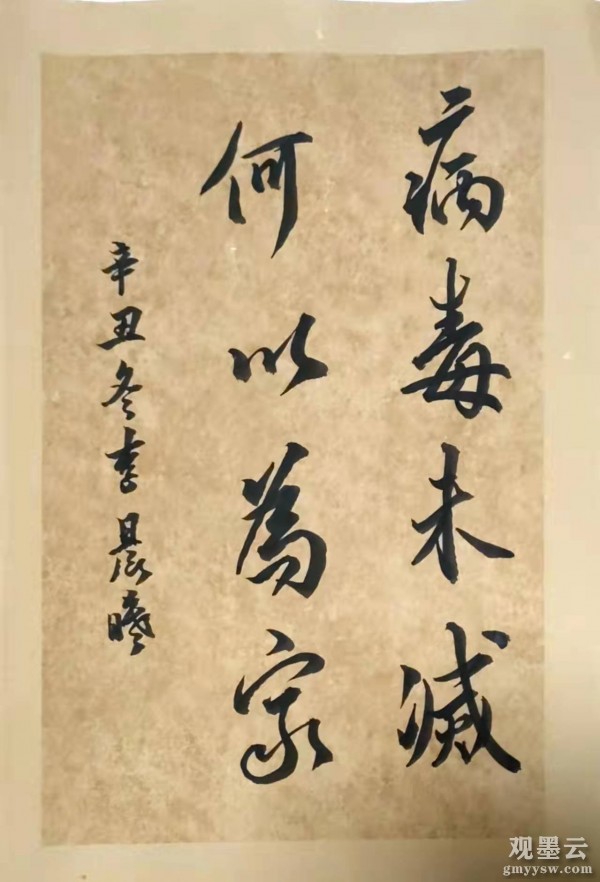 病毒未滅
何以為家
辛丑冬李晨曦
观墨云
gmyysw.com